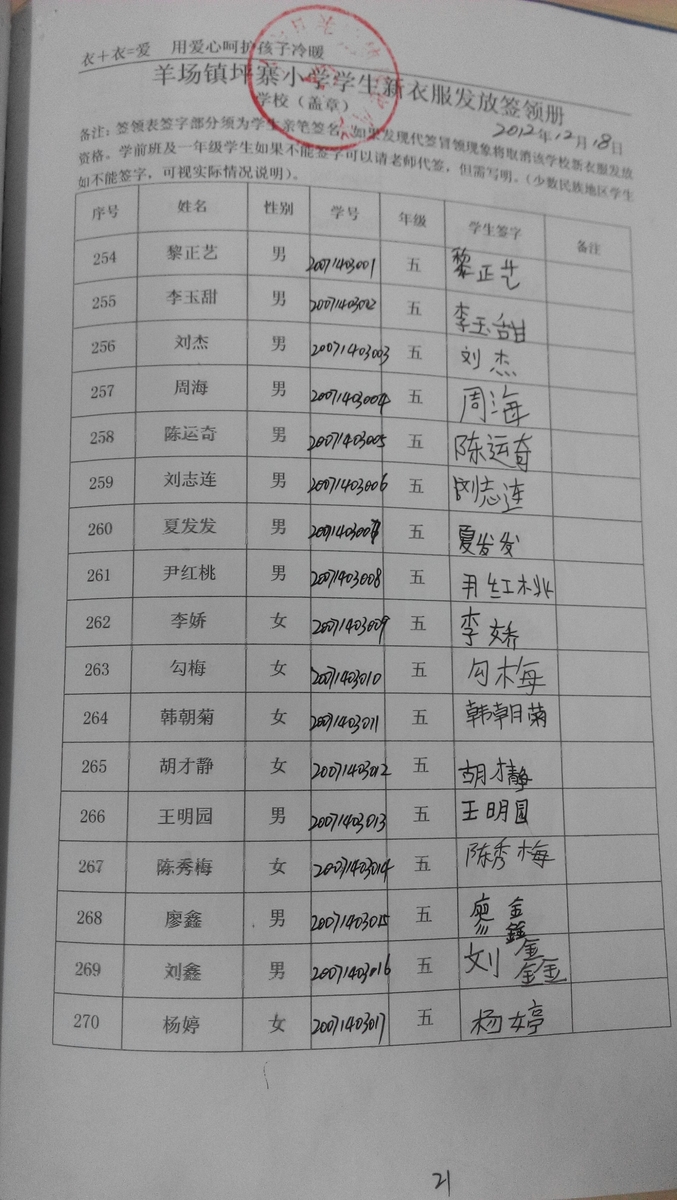 衣+衣=爱 用爱心呵护孩子冷暖
羊场镇坪寨小学学生新衣服发放签领册
学校（盖章） 2012年12月18日
备注：签领表签字部分须为学生亲笔签名，如果发现代签冒领现象将取消该学校新衣服发放
资格。学前班及一年级学生如果不能签字可以请老师代签，但需写明。（少数民族地区学生
如不能签字，可视实际情况说明）。
序号 姓名 性别 学号 年级 学生签字 备注
254 黎正艺 男 20071403001 五 黎正艺
255 李玉甜 男 20071403002 五 李玉甜
256 刘杰 男 20071403003 五 刘杰
257 周海 男 20071403004 五 周海
258 陈运奇 男 20071403005 五 陈运奇
259 刘志连 男 20071403006 五 刘志连
260 夏发发 男 20071403007 五 夏发发
261 尹红桃 男 20071403008 五 尹红桃
262 李娇 女 20071403009 五 李娇
263 勾梅 女 20071403010 五 勾梅
264 韩朝菊 女 20071403011 五 韩朝菊
265 胡才静 女 20071403012 五 胡才静
266 王明园 男 20071403013 五 王明园
267 陈秀梅 女 20071403014 五 陈秀梅
268 廖鑫 男 20071403015 五 廖鑫
269 刘鑫 男 20071403016 五 刘鑫
270 杨婷 女 20071403017 五 杨婷
21